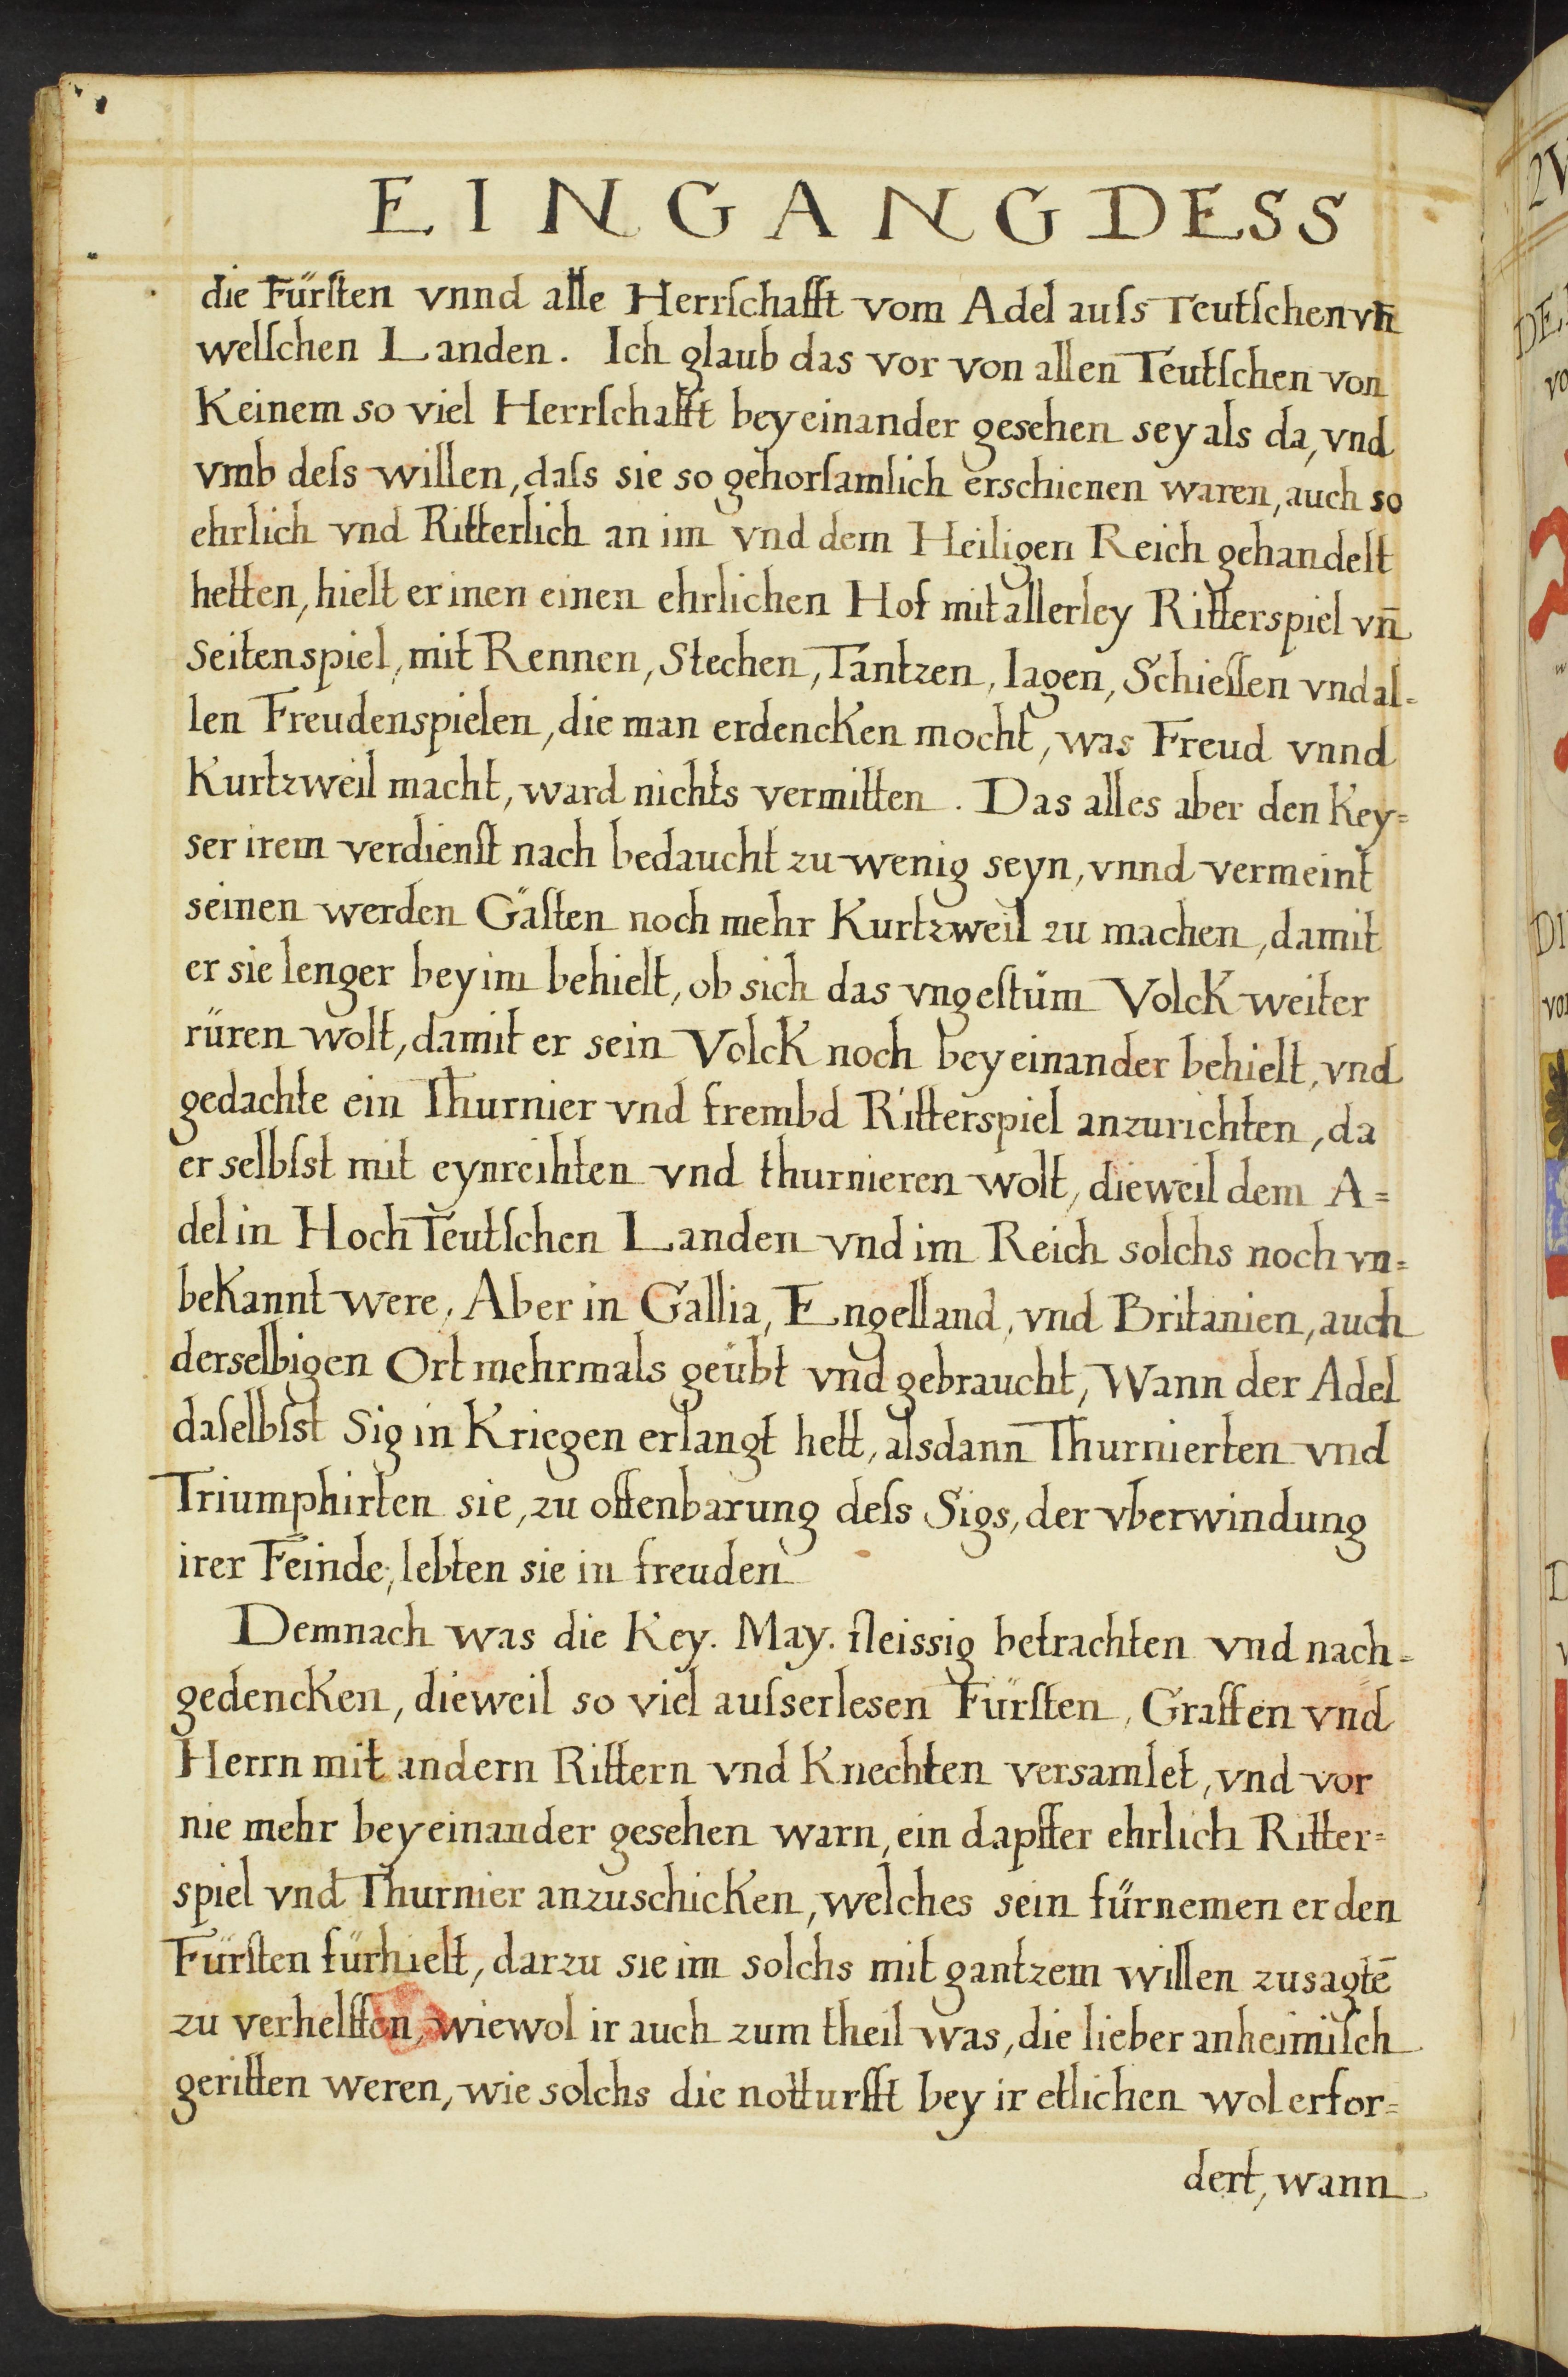 EINGANG DESS
die Fürſten vnnd alle Herrſchafft vom Adel auſs Teutſchen vn̄
welſchen Landen. Ich glaub das vor von allen Teutſchen von
Keinem so viel Herrſchafft bey einander gesehen sey als da, vnd
vmb deſs willen, daſs sie so gehorſamlich erschienen waren, auch so
ehrlich vnd Ritterlich an im vnd dem Heiligen Reich gehandelt
hetten, hielt er inen einen ehrlichen Hof mit allerley Ritterspiel vn̄
Seitenspiel, mit Rennen, Stechen, Tantzen, Iagen, Schieſſen vnd al=
len Freudenspielen, die man erdencken mocht, was Freud vnnd
Kurtzweil macht, ward nichts vermitten. Das alles aber den Key=
ser irem verdienſt nach bedaucht zu wenig seyn, vnnd vermeint
seinen werden Gäſten noch mehr Kurtzweil zu machen, damit
er sie lenger bey im behielt, ob sich das vngeſtüm Volck weiter
rüren wolt, damit er sein Volck noch bey einander behielt, vnd
gedachte ein Thurnier vnd frembd Ritterspiel anzurichten, da
er selbſst mit eynreihten vnd thurnieren wolt, dieweil dem A=
del in Hoch Teutſchen Landen vnd im Reich solchs noch vn=
bekannt were, Aber in Gallia, Engelland, vnd Britanien, auch
derselbigen Ort mehrmals geübt vnd gebraucht, Wann der Adel
daſelbſst Sig in Kriegen erlangt hett, alsdann Thurnierten vnd
Triumphirten sie, zu offenbarung deſs Sigs, der vberwindung
irer Feinde, lebten sie in freuden
Demnach was die Key. May. fleissig betrachten vnd nach=
gedencken, dieweil so viel auſserlesen Fürſten, Graffen vnd
Herrn mit andern Rittern vnd Knechten versamlet, vnd vor
nie mehr bey einander gesehen warn, ein dapffer ehrlich Ritter=
spiel vnd Thurnier anzuschicken, welches sein fürnemen er den
Fürſten fürhielt, darzu sie im solchs mit gantzem willen zusagtē
zu verhelffen, wiewol ir auch zum theil was, die lieber anheimiſch
geritten weren, wie solchs die notturfft bey ir etlichen wol erfor=
dert, wann